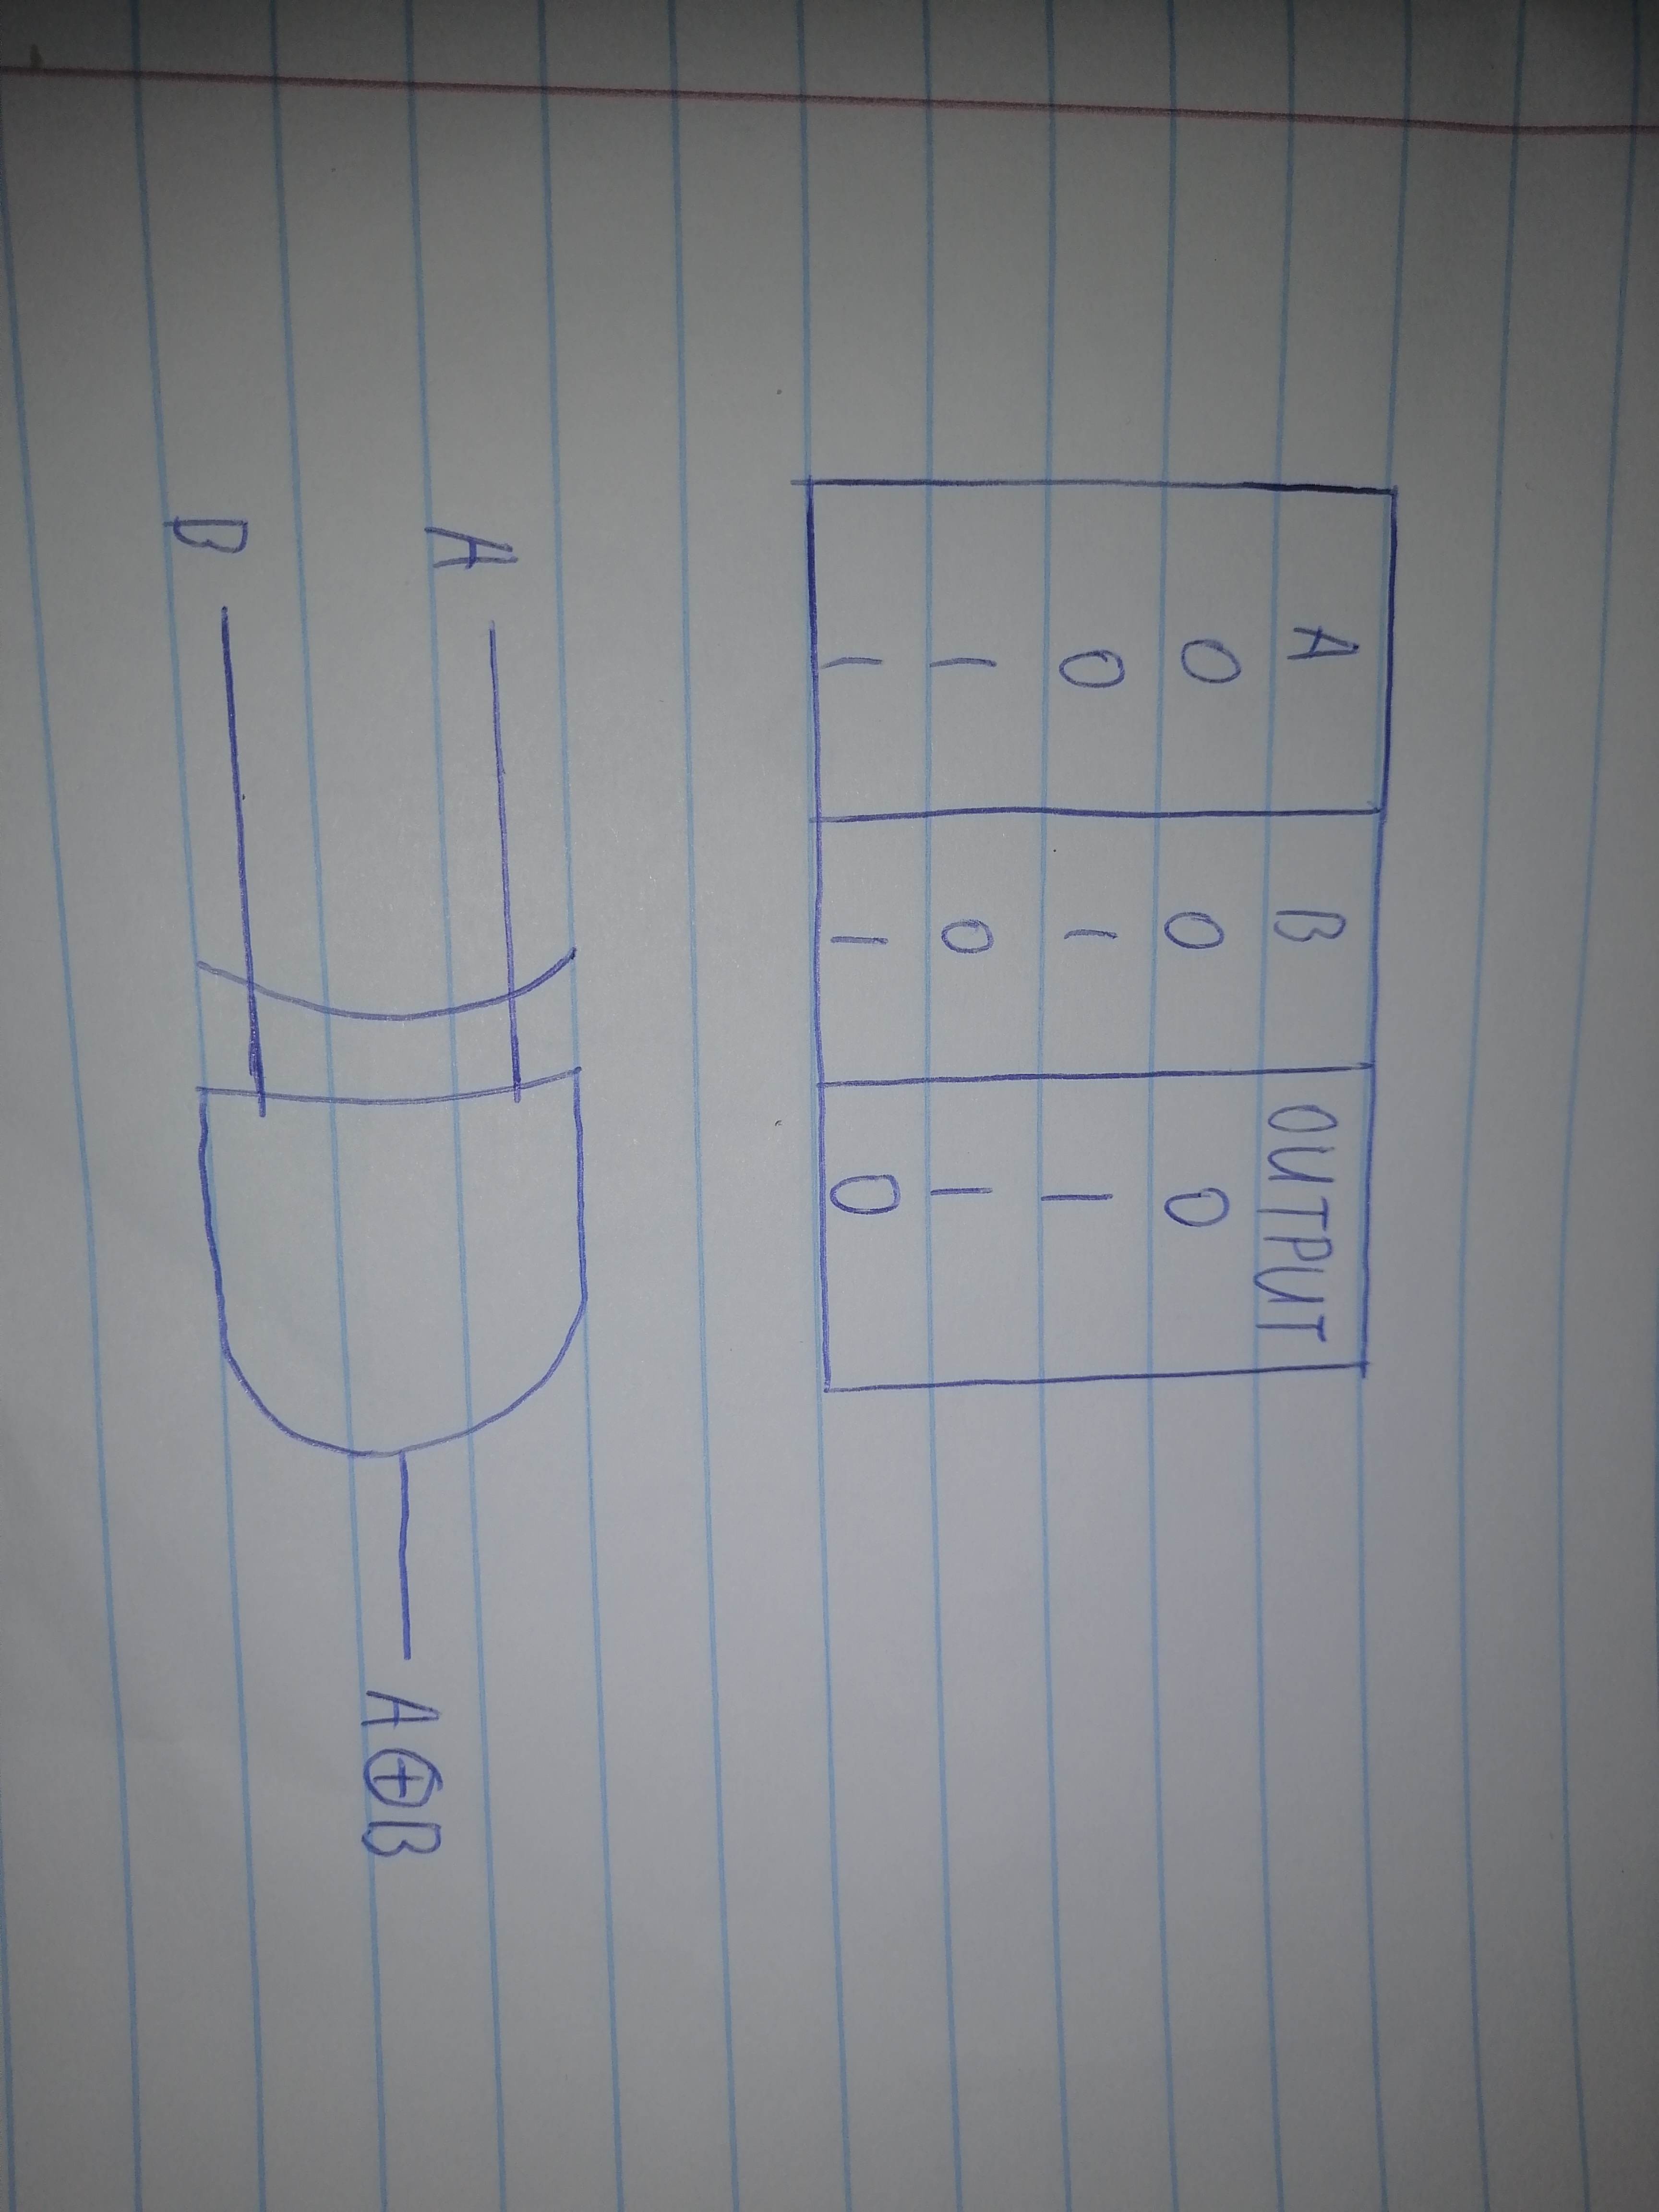 A B OUTPUT
0 0 0
0 1 1
1 0 1
1 1 0
A
B
A⊕B